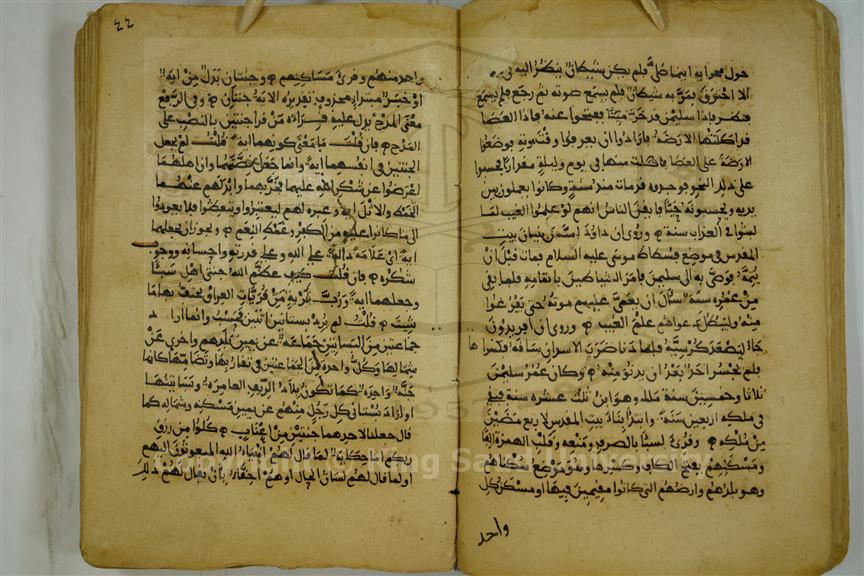 حول محرابه اينما صلى فلم يكن شيطان ينظر اليه في
الا احترق فمر به شيطان فلم يسمع صوته ثم رجع فلم يسمع
فنظر فإذا سليمن قد خر ميتا ففتحوا عنه فإذا العصا
قد اكلتها الارضة فارادوا ان يعرفوا وقت موته فوضعوا
الارضة على العصا فاكلت منها في يوم وليلة مقدارا فحسبوا
على ذلك النحو فوجدوه قد مات منذ سنة وكانوا يعملون بين
يديه ويحسبونه حيا فايقن الناس انهم لو علموا الغيب لما
لبثوا في العذاب سنة وروي ان داود اسس بنيان بيت
المقدس في موضع فسطاط موسى عليه السلام فمات قبل ان
يتمه فوصى به الى سليمن فامر الشياطين باتمامه فلما بقي
من عمره سنة سال ان يعمى عليهم موته حتى يفرغوا
منه ولتبطل دعواهم علم الغيب وروي ان افريدون
جاء ليصعد كرسيه فلما دنا ضرب الاسدان ساقه فكسراها
فلم يجسر احد بعد ان يدنو منه وكان عمر سليمن
ثلاثا وخمسين سنة ملك وهو ابن ثلاث عشرة سنة فبقي
في ملكه اربعين سنة وابتدا بناء بيت المقدس لاربع مضين
من ملكه وقرئ لسبا بالصرف ومنعه وقلب الهمزة الفا
ومسكنهم بفتح الكاف وكسرها وهو موضع سكناهم
وهو بلدهم وارضهم التي كانوا مقيمين فيها او مسكن كل
واحد
٤٤
واحد منهم وقرئ مساكنهم وجنتان بدل من اية
او خبر مبتدا محذوف تقديره الاية جنتان وفي الرفع
معنى المدح يدل عليه قراءة من قرا جنتين بالنصب على
المدح فان قلت ما معنى كونهما اية قلت لم يجعل
الجنتين في انفسهما اية وانما جعل قصتهما وان اهلهما
اعرضوا عن شكر الله عليهما فخربهما وابدلهم عنهما
الخمط والاثل اية وعبرة لهم ليعتبروا ويتعظوا فلا يعودوا
الى ما كانوا عليه من الكفر وغمط النعم ويجوز ان يجعلهما
اية اي علامة دالة على الله وعلى قدرته واحسانه ووجوب
شكره فان قلت كيف عظم الله جنتي اهل سبا
وجعلهما اية ورب قرية من قريات العراق يحتف بها ما
شيت قلت لم يرد بستانين اثنين فحسب وانما اراد
جماعتين من البساتين جماعة عن يمين بلدهم واخرى عن
شمالها وكل واحدة من الجماعتين في تقاربها وتضامها كانها
جنة واحدة كما تكون بلاد الريف العامرة وبساتينها
او اراد بستاني كل رجل منهم عن يمين مسكنه وشماله كما
قال جعلنا لاحدهما جنتين من اعناب كلوا من رزق
ربكم اما حكاية لما قال لهم انبياء الله المبعوثون اليهم
او لما قال لهم لسان الحال او هم احقاء بان يقال لهم ذلك